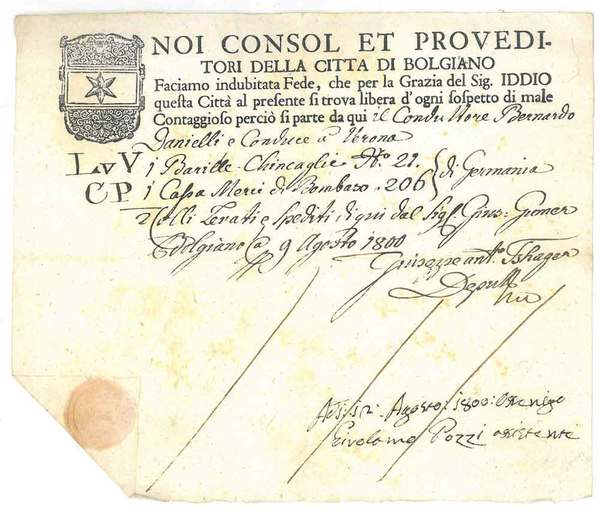 NOI CONSOL ET PROVEDI-
TORI DELLA CITTA DI BOLGIANO
Faciamo indubitata Fede, che per la Grazia del Sig. IDDIO
questa Città al presente si trova libera d'ogni sospetto di male
Contaggioso perciò si parte da qui il Conduttore Bernardo
Danielli e Conduce a Verona
LvV 1 Barille Chincaglie No. 21. } di Germania
CP 1 Cassa Merci di Bombaso . 206
2 Colli Levati e Spediti di qui dal Sig. Gius:
Bolgiano 9 Agosto 1800
Giuseppe ant.o
Deput
Adi 12. Agosto 1800:
Pozzi assistente